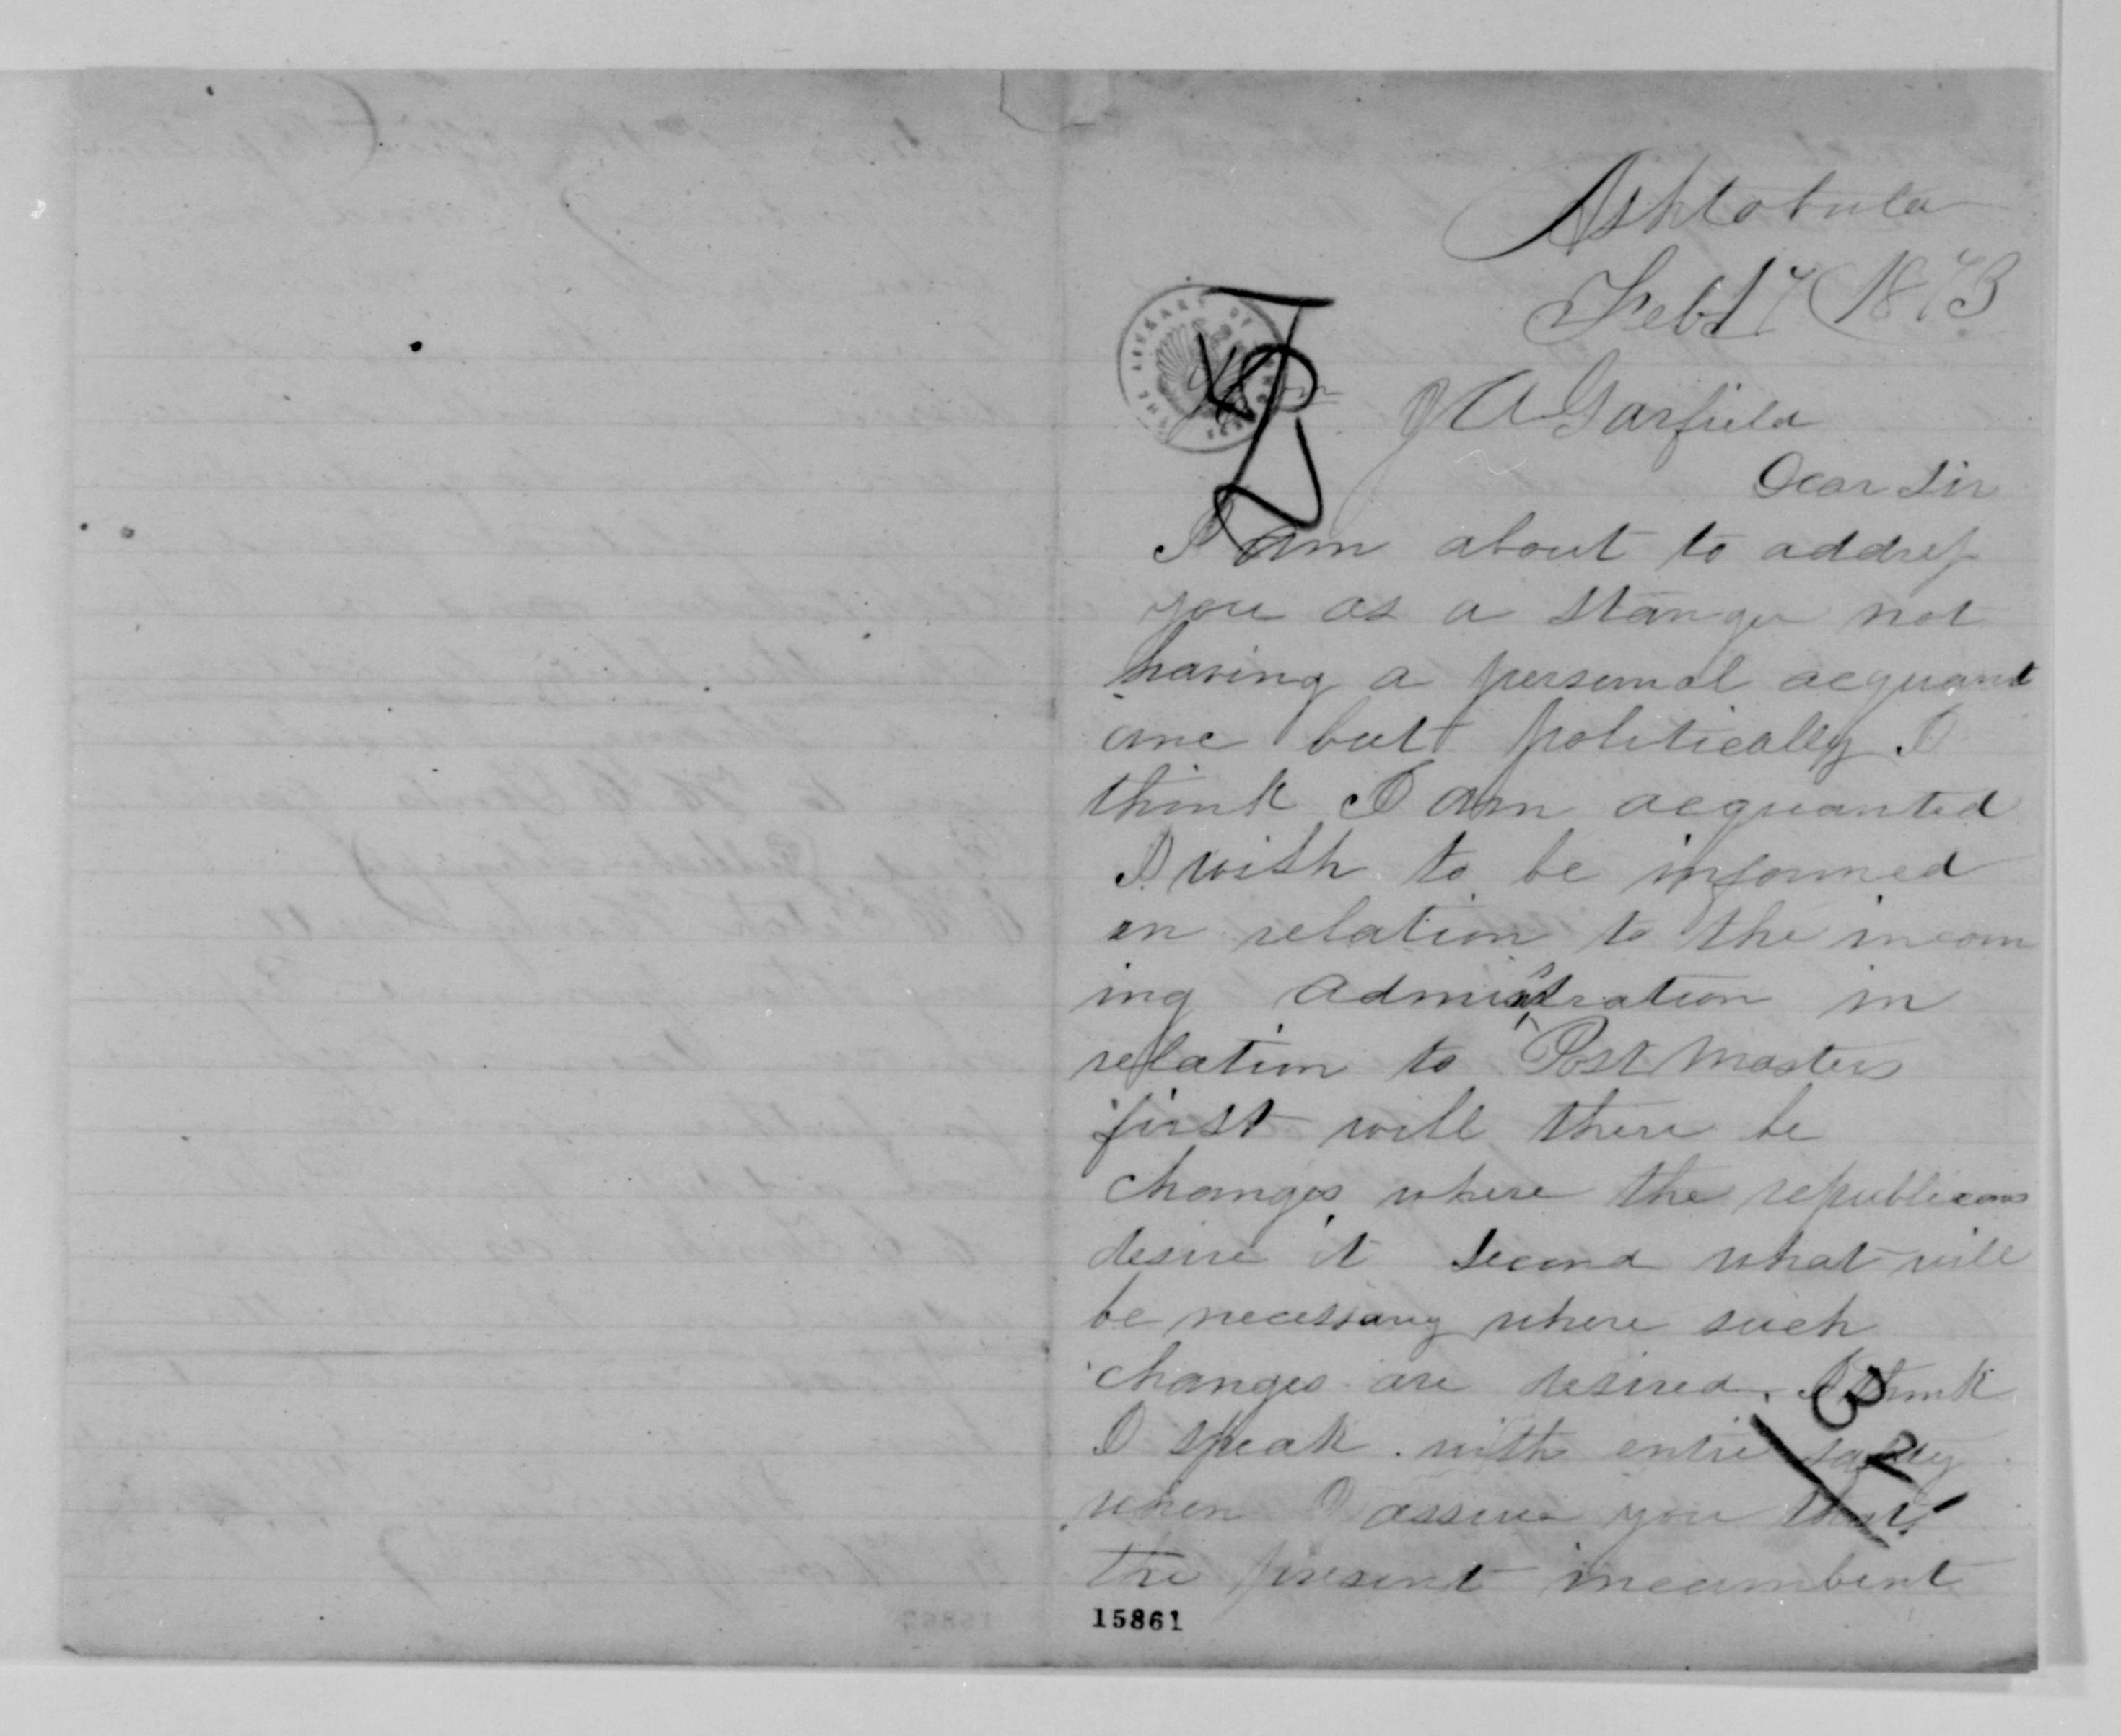 Ashtabula
Feb 17 1873
Hon J A Garfield
Dear Sir
I am about to address
you as a stanger not
having a personal acquant
anc but politically I
think I am acquanted
I wish to be informed
in relation to the incom
ing admistration in
relation to Post Masters
first will there be
changes where the republicans
desire it Second what will
be necessary where such
changes are desired. I think
I speak with entire safty
when I assure you that
the present incumbent
15861